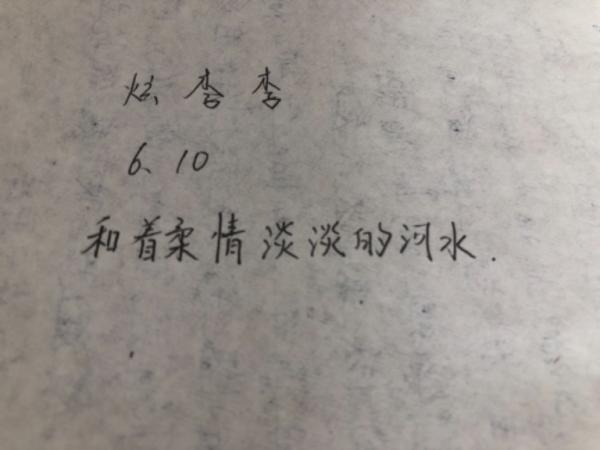 炫 杏 杏
6、10
和着柔情淡淡的河水.